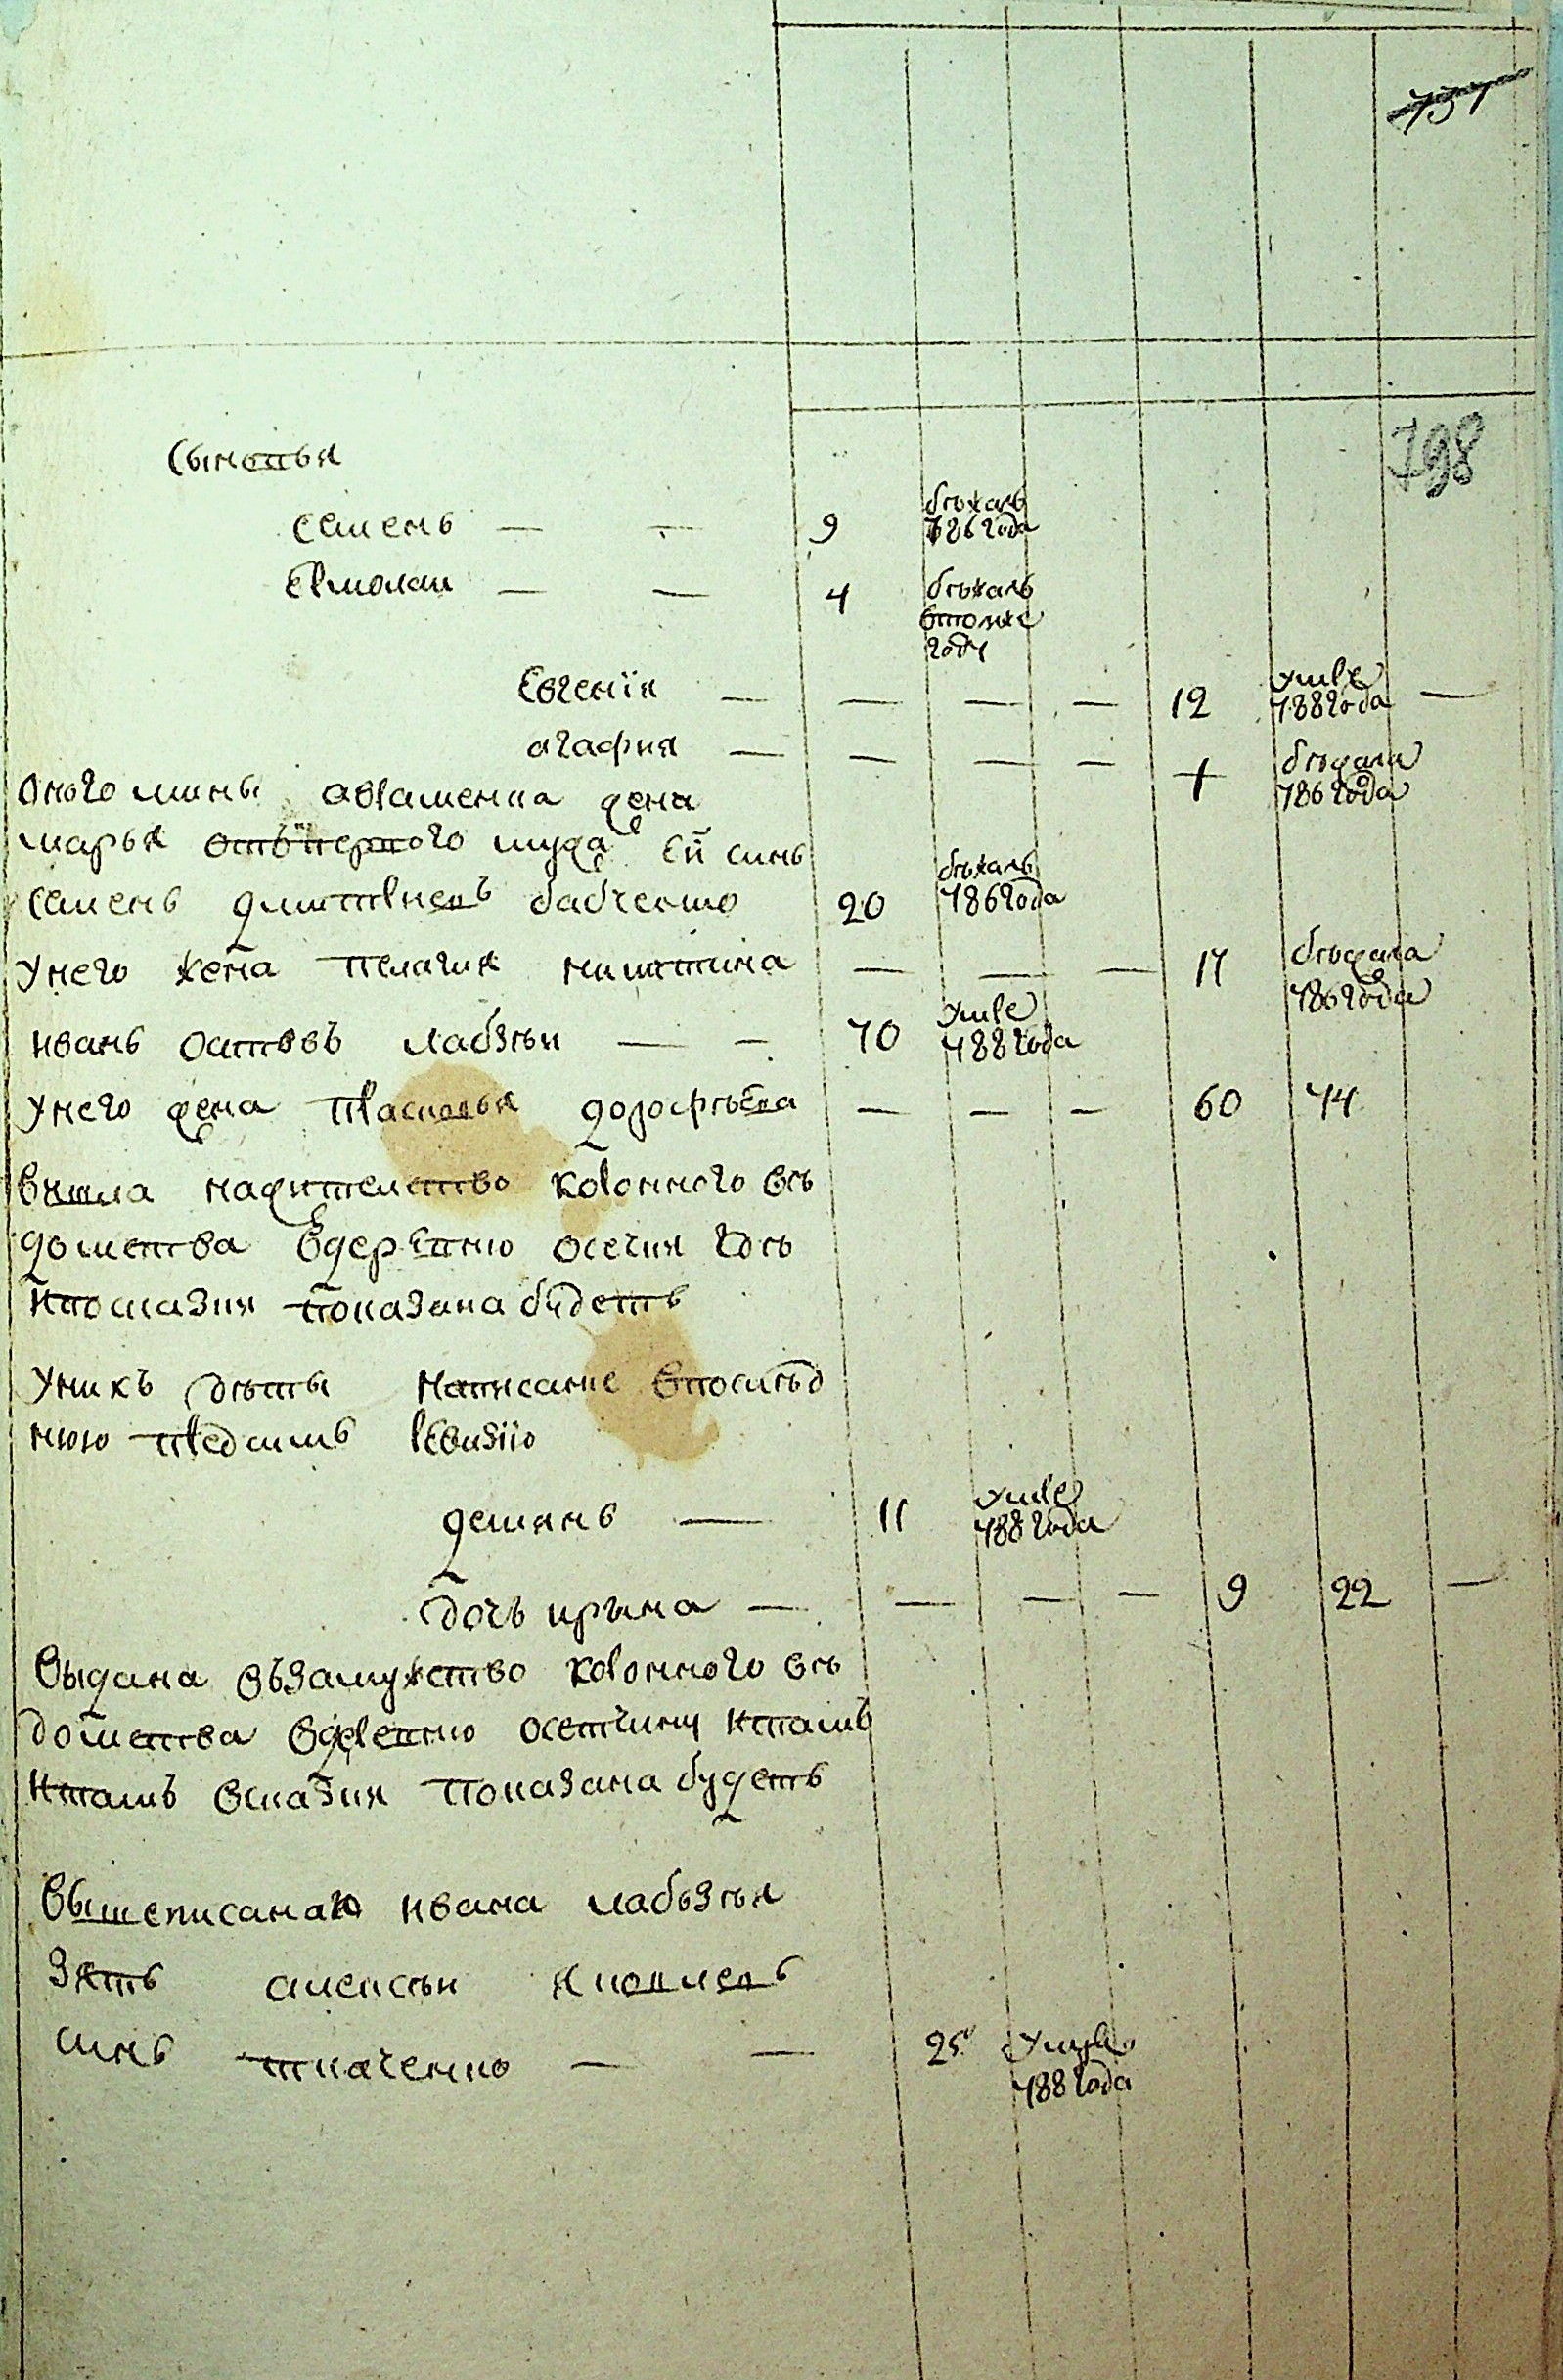 731
198
Сыновья
семенъ — — 9 бѣжалъ 786 года
Ермолаи — — 4 бѣжалъ втомже году
Евгенїя — — — — 12 умре 788 года —
агафия — — — — 1 бѣжала 786 года
Оного мины авраменка жена
марья отъ первого мужа Ей синъ
семенъ дмитривъ бабченко 20 бѣжалъ 786 года
унего жена пелагия никитина — — — 17 бѣжала 786 года
иванъ остаповъ лабзѣи — — 70 умре 788 года
унего жена прасковья дорофѣева — — — 60 74
вишла нажителство коронного вѣ
домства вдеревню осечки гдѣ
Посказки показана будетъ
Уникъ дѣти написание впослѣд
нюю предсимъ Ревизїю
демянъ — 11 умре 788 года
дочъ ирына — — — — 9 22 —
выдана взамужство коронного вѣ
домства вдеревню осетчину итамъ
итамъ всказки показана будетъ
Вышеписанаго ивана лабьзѣя
Зять алексѣи яковлевъ
синъ ткаченко — — 25 Умре 788 года